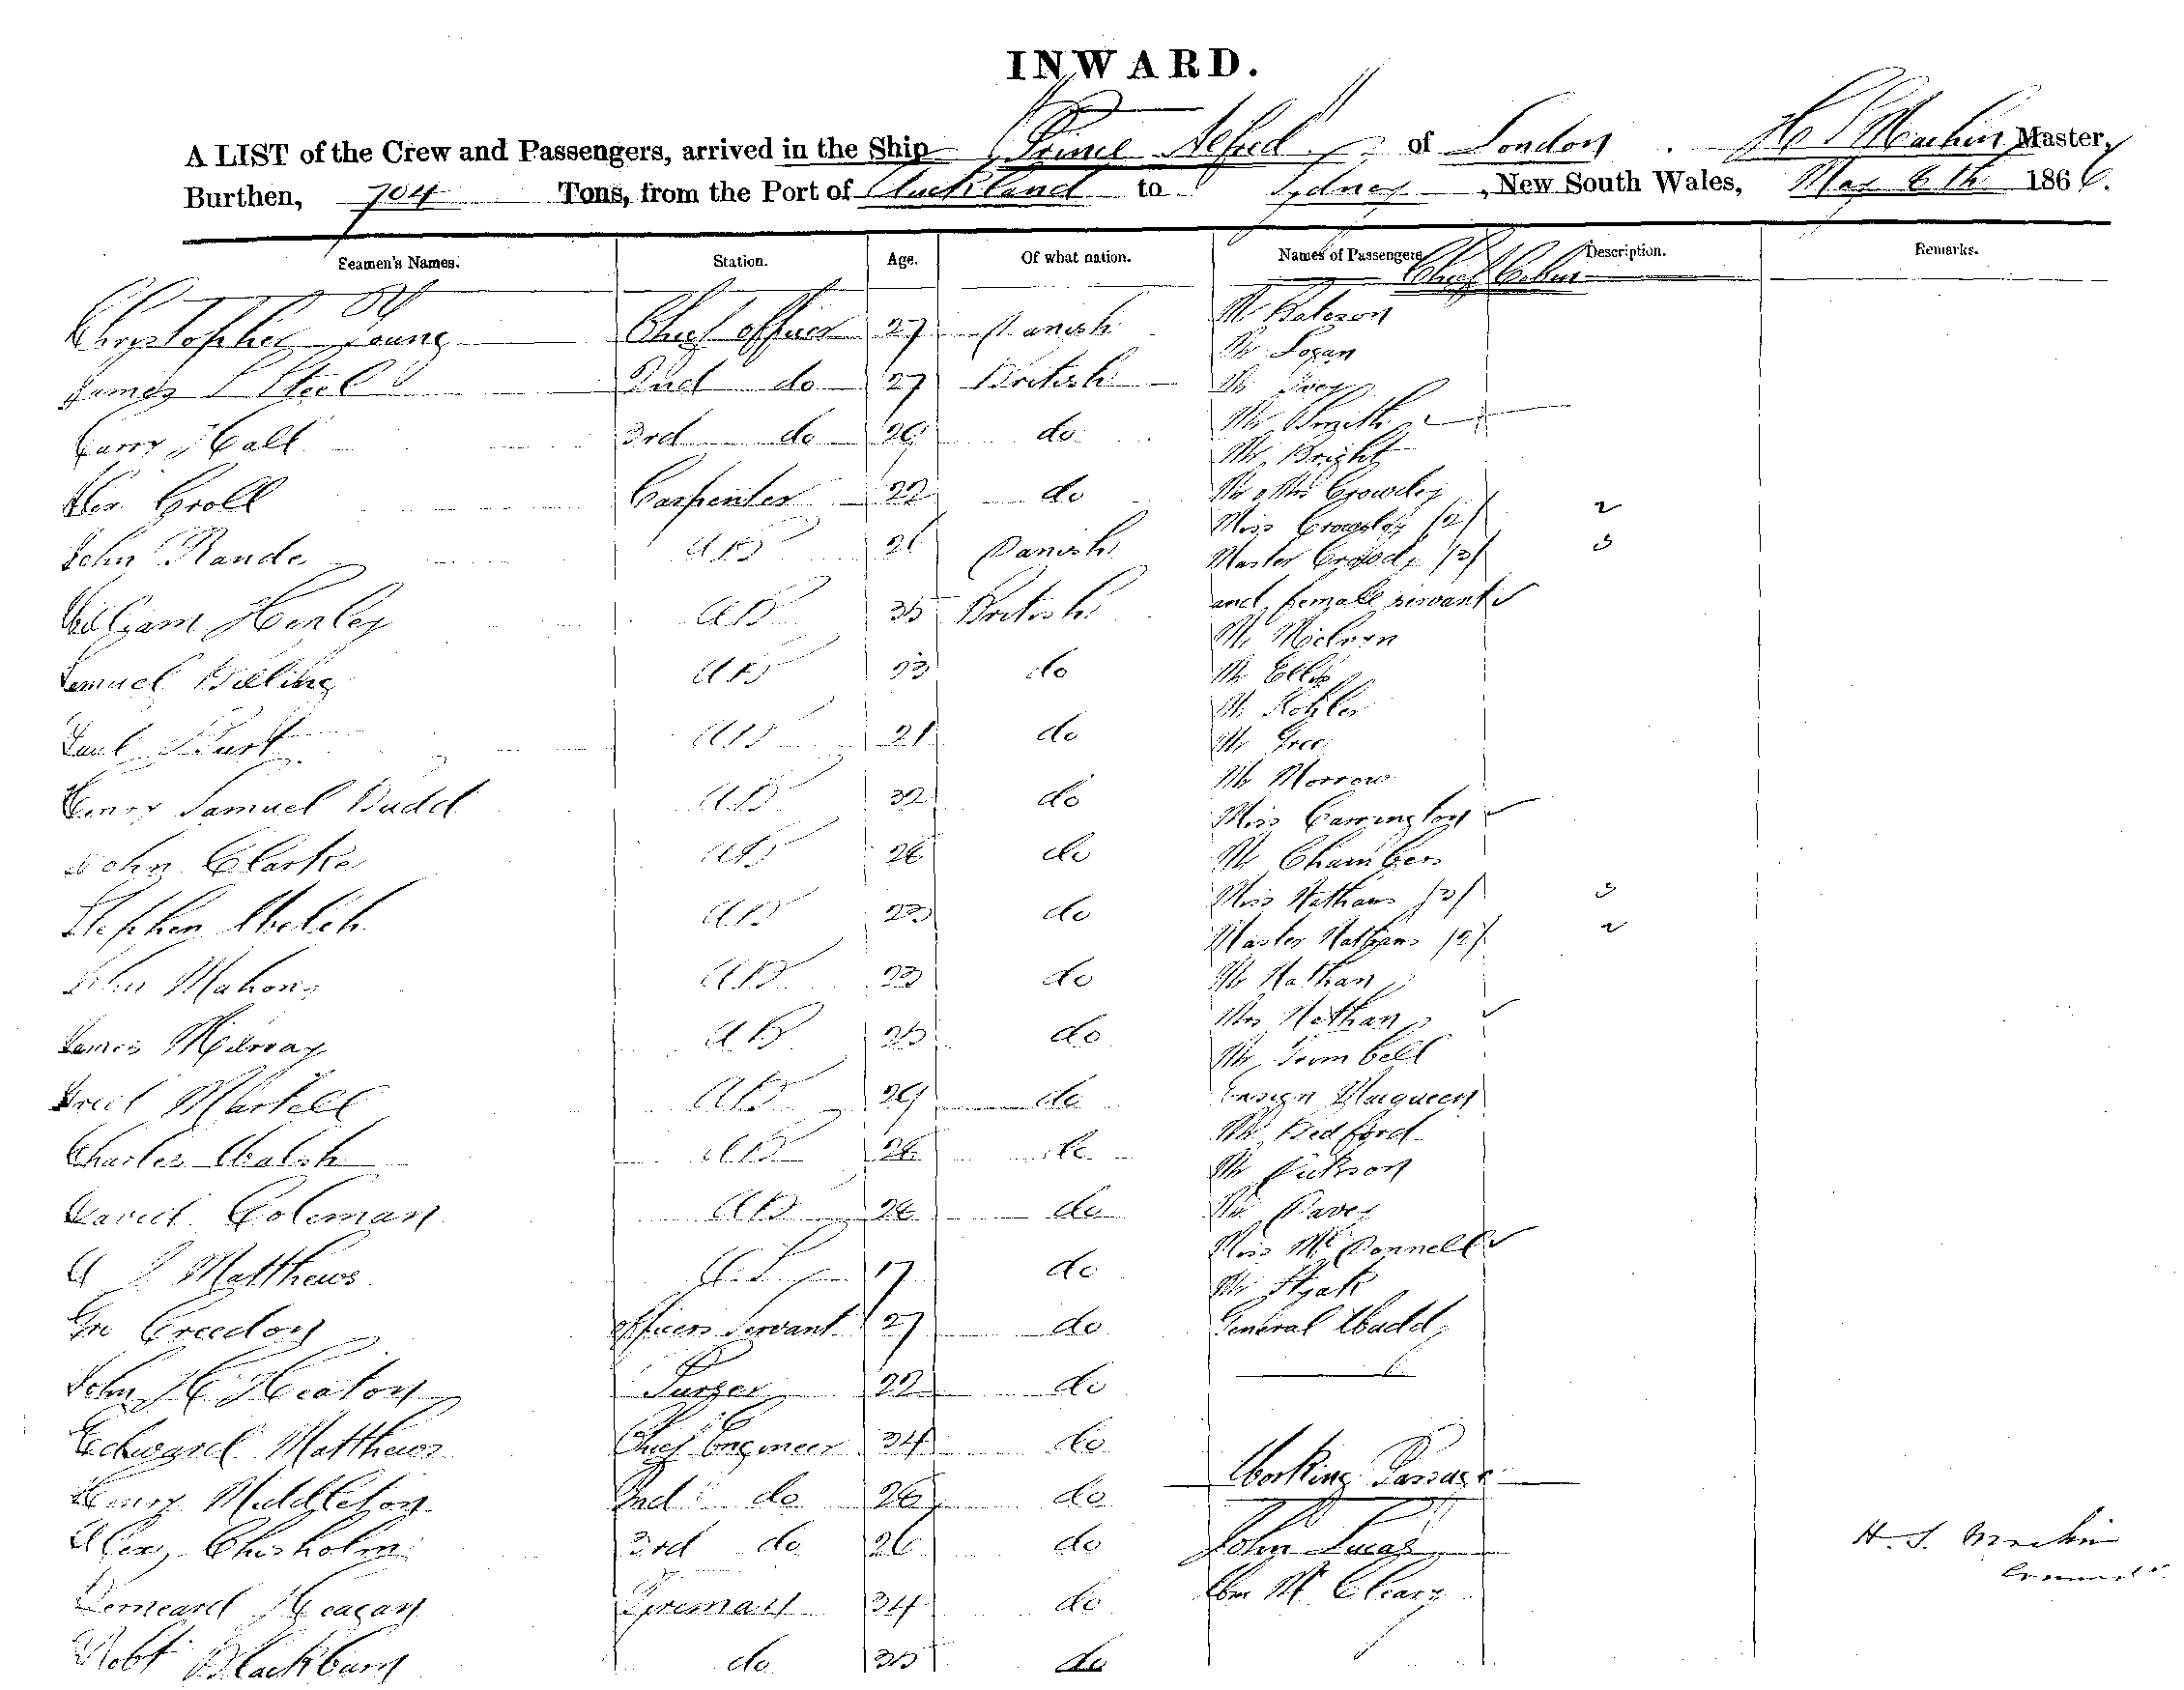 INWARD.
A LIST of the Crew and Passengers, arrived in the Ship "Prince Alfred" of London. H S Machin Master,
Burthen, 704 Tons, from the Port of Auckland to Sydney, New South Wales, May 6th 1866.
Seamen's Names. Station. Age. Of what nation. Names of Passengers Description. Remarks.
Chief Cabin
Chrystopher Young Chief officer 27 Danish Mr Bateson
Mr Logan
James S Steel 2nd do 27 British Mr
Mr Smith
Harry Hall 3rd do 29 do Mr Bright
Alex Croll Carpenter 22 do Mr & Mrs Crowdey
Miss Crowdey /2/ 2
John Rande AB 21 Danish Master Crowdy /3/ 3
William Henley AB 35 British and female servant
Mr McIlvern
Samuel Billing AB 23 do Mr Ellis
Mr Kohler
Paul Burt AB 21 do Mr
Henry Samuel Budd AB 32 do Mr Morrow
Miss Carrington
John Clarke AB 26 do Mr Chambers
Stephen Welch AB 23 do Miss Nathans /3/ 3
Master Nathans /2/ 2
John Mahony AB 23 do Mr Nathan
Mrs Nathan
James Murray AB 25 do Mr Turnbell
Fred Martell AB 29 do Ensign Macqueen
Charles Walsh AB 26 do Mr Bedford
Mr Dickson
David Coleman AB 26 do Mr Davey
Miss McDonnell
A J Matthews 17 do Mr Hyak
Geo Creedon officers Servant 27 do General Wadd
John H Heaton Purser 22 do
Edward Matthews Chief Engineer 34 do
Working Passage
Henry Middleton 2nd do 26 do
Alexr Chisholm 3rd do 26 do John Lucas
H. S. Machin
Commander
Berneard Heagan Fireman 34 do Wm McCleary
Robt Blackburn do 35 do